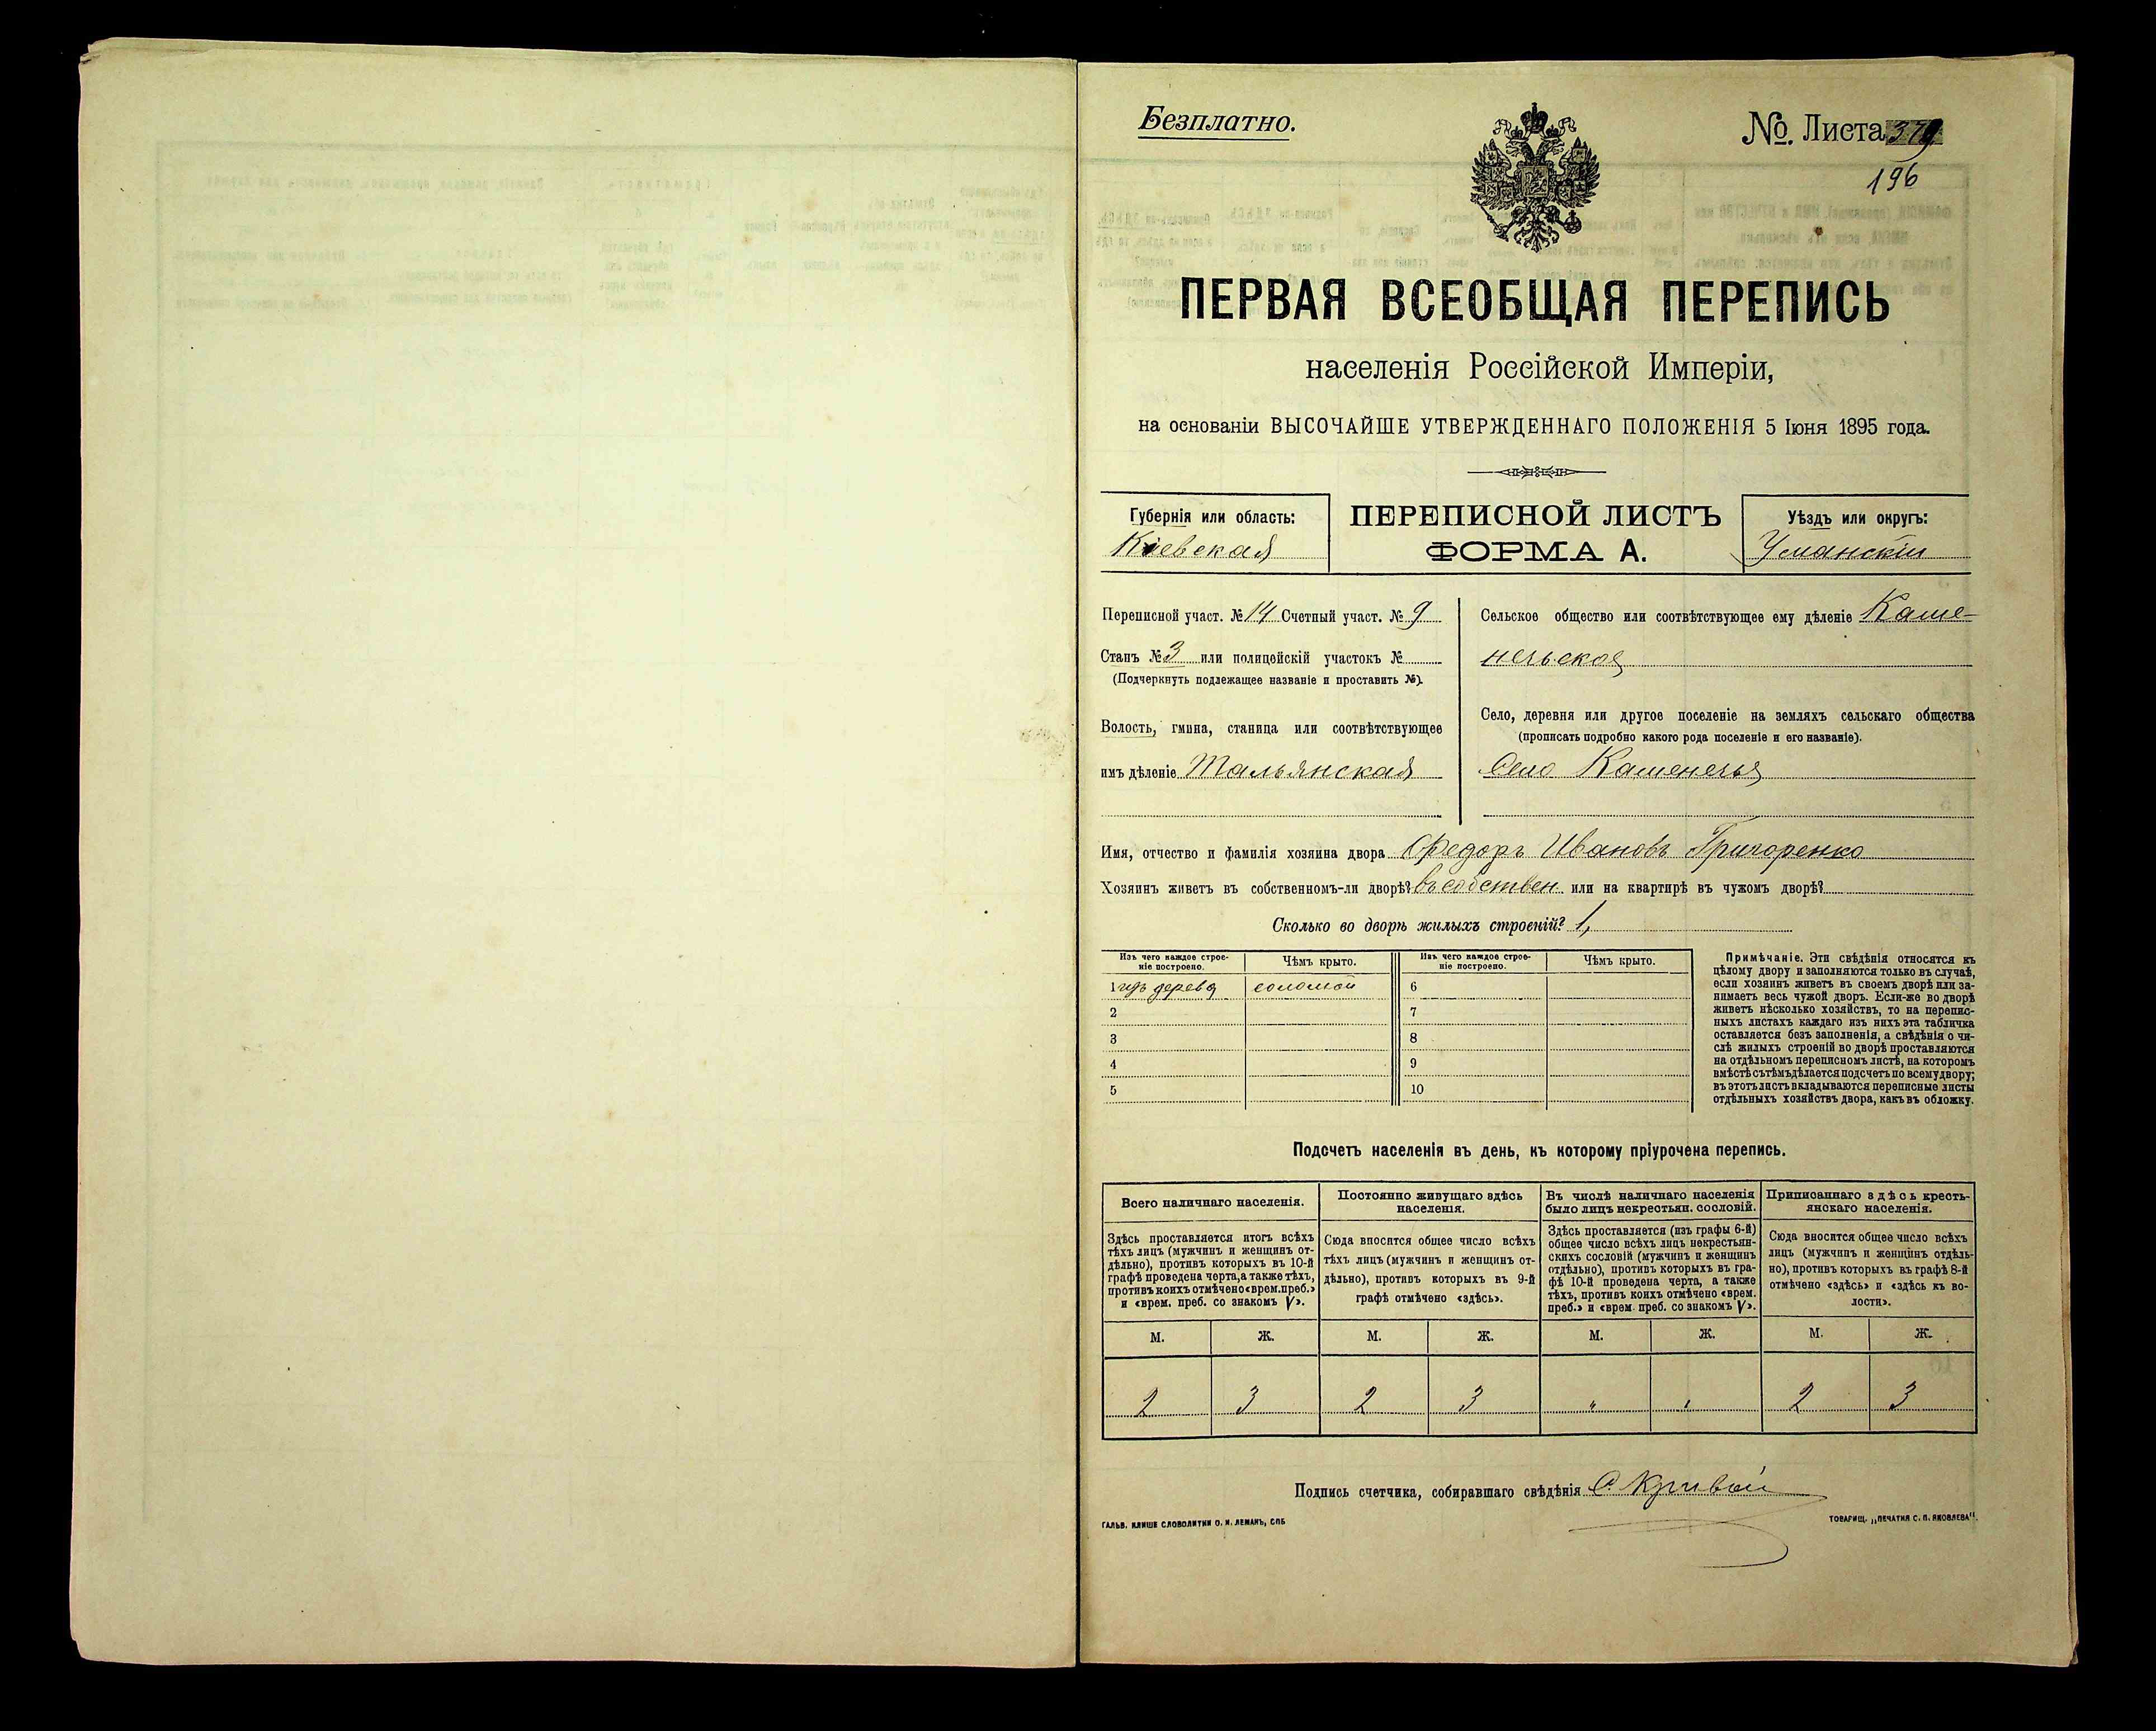 Безплатно.
№. Листа 379
196
ПЕРВАЯ ВСЕОБЩАЯ ПЕРЕПИСЬ
населенія Россійской Имперіи,
на основаніи ВЫСОЧАЙШЕ УТВЕРЖДЕННАГО ПОЛОЖЕНІЯ 5 Іюня 1895 года.
Губернія или область:
Кіевская
ПЕРЕПИСНОЙ ЛИСТЪ
ФОРМА А.
Уѣздъ или округъ:
Уманскій
Переписной участ. № 14 Счетный участ. № 9
Станъ № 3 или полицейскій участокъ №
(Подчеркнуть подлежащее названіе и проставить №).
Волость, гмина, станица или соотвѣтствующее
имъ дѣленіе Тальянская
Сельское общество или соотвѣтствующее ему дѣленіе Каме-
нечьское
Село, деревня или другое поселеніе на земляхъ сельскаго общества
(прописать подробно какого рода поселеніе и его названіе).
Село Каменечье
Имя, отчество и фамилія хозяина двора Федоръ Ивановъ Григоренко
Хозяинъ живетъ въ собственномъ-ли дворѣ? въ собствен или на квартирѣ въ чужомъ дворѣ?
Сколько во дворѣ жилыхъ строеній? 1,
Изъ чего каждое строе-
ніе построено.
Чѣмъ крыто.
Изъ чего каждое строе-
ніе построено.
Чѣмъ крыто.
1 изъ дерева соломой 6
2 7
3 8
4 9
5 10
Примѣчаніе. Эти свѣдѣнія относятся къ
цѣлому двору и заполняются только въ случаѣ,
если хозяинъ живетъ въ своемъ дворѣ или за-
нимаетъ весь чужой дворъ. Если-же во дворѣ
живетъ нѣсколько хозяйствъ, то на перепис-
ныхъ листахъ каждаго изъ нихъ эта табличка
оставляется безъ заполненія, а свѣдѣнія о чи-
слѣ жилыхъ строеній во дворѣ проставляются
на отдѣльномъ переписномъ листѣ, на которомъ
вмѣстѣ съ тѣмъ дѣлается подсчетъ по всему двору;
въ этотъ листъ вкладываются переписные листы
отдѣльныхъ хозяйствъ двора, какъ въ обложку.
Подсчетъ населенія въ день, къ которому пріурочена перепись.
Всего наличнаго населенія.
Здѣсь проставляется итогъ всѣхъ
тѣхъ лицъ (мужчинъ и женщинъ от-
дѣльно), противъ которыхъ въ 10-й
графѣ проведена черта, а также тѣхъ,
противъ коихъ отмѣчено «врем. преб.»
и «врем. преб. со знакомъ V».
Постоянно живущаго здѣсь
населенія.
Сюда вносится общее число всѣхъ
тѣхъ лицъ (мужчинъ и женщинъ от-
дѣльно), противъ которыхъ въ 9-й
графѣ отмѣчено «здѣсь».
Въ числѣ наличнаго населенія
было лицъ некрестьян. сословій.
Здѣсь проставляется (изъ графы 6-й)
общее число всѣхъ лицъ некрестьян-
скихъ сословій (мужчинъ и женщинъ
отдѣльно), противъ которыхъ въ гра-
фѣ 10-й проведена черта, а также
тѣхъ, противъ коихъ отмѣчено «врем.
преб.» и «врем. преб. со знакомъ V».
Приписаннаго здѣсь кресть-
янскаго населенія.
Сюда вносится общее число всѣхъ
лицъ (мужчинъ и женщинъ отдѣль-
но), противъ которыхъ въ графѣ 8-й
отмѣчено «здѣсь» и «здѣсь къ во-
лости».
М. Ж. М. Ж. М. Ж. М. Ж.
2 3 2 3 „ „ 2 3
Подпись счетчика, собиравшаго свѣдѣнія С. Кривой
ГАЛЬВ. КЛИШЕ СЛОВОЛИТНИ О. И. ЛЕМАНЪ, СПБ
ТОВАРИЩ. „ПЕЧАТНЯ С. П. ЯКОВЛЕВА".